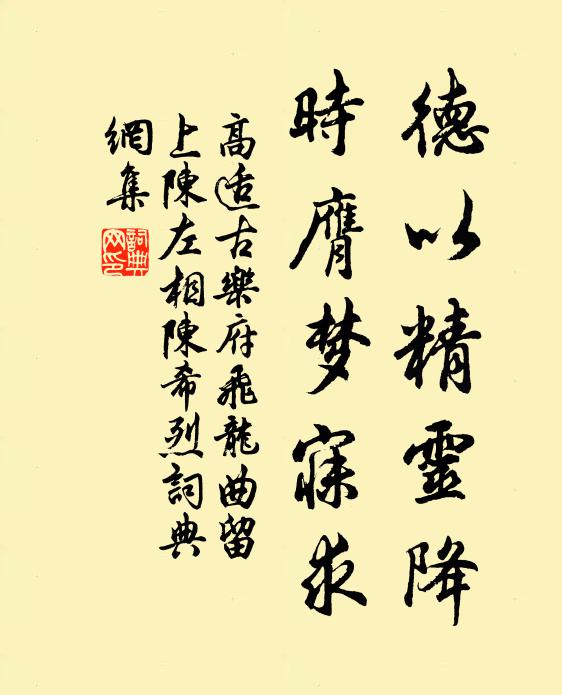 德以精靈降
時膺梦寐求
高适古樂府飛龍曲留
上陳左相陳希烈詞典
網集
詞典
网印